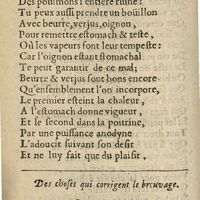 Des poulmons l'entiere ruine:
Tu peux aussi prendre un boüillon
Avec beurre, verjus, oignon,
Pour remettre estomach & teste,
Où les vapeurs font leur tempeste:
Car l'oignon estant stomachal
Te peut garantir de ce mal;
Beurre & verjus sont bons encore
Qu'ensemblement l'on incorpore,
Le premier esteint la chaleur,
A l'estomach donne vigueur,
Et le second dans la poitrine,
Par une puissance anodyne
L'adoucit suivant son desir
Et ne luy fait que du plaisir,
Des choses qui corrigent le breuvage.